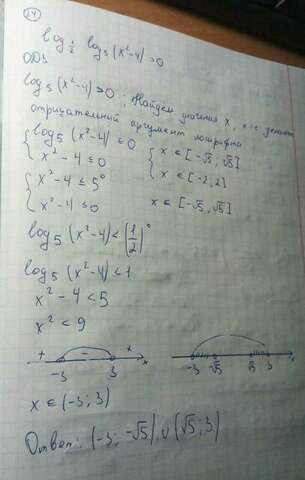 24
log_{1/2} log_5 (x²-4) > 0
ОДЗ
log_5 (x²-4) > 0; Найдём значения x, делают
отрицательный аргумент логарифма
{ log_5 (x²-4) ≤ 0 { x ∈ [-√5, √5]
x²-4 ≤ 0 x ∈ [-2, 2]
{ x²-4 ≤ 5⁰
x²-4 ≤ 0 x ∈ [-√5, √5]
log_5 (x²-4) < (1/2)⁰
log_5 (x²-4) < 1
x²-4 < 5
x² < 9
+ - x -3 3 x
-3 -√5 √5 3 x
x ∈ (-3; 3)
Ответ: (-3; -√5) ∪ (√5; 3)